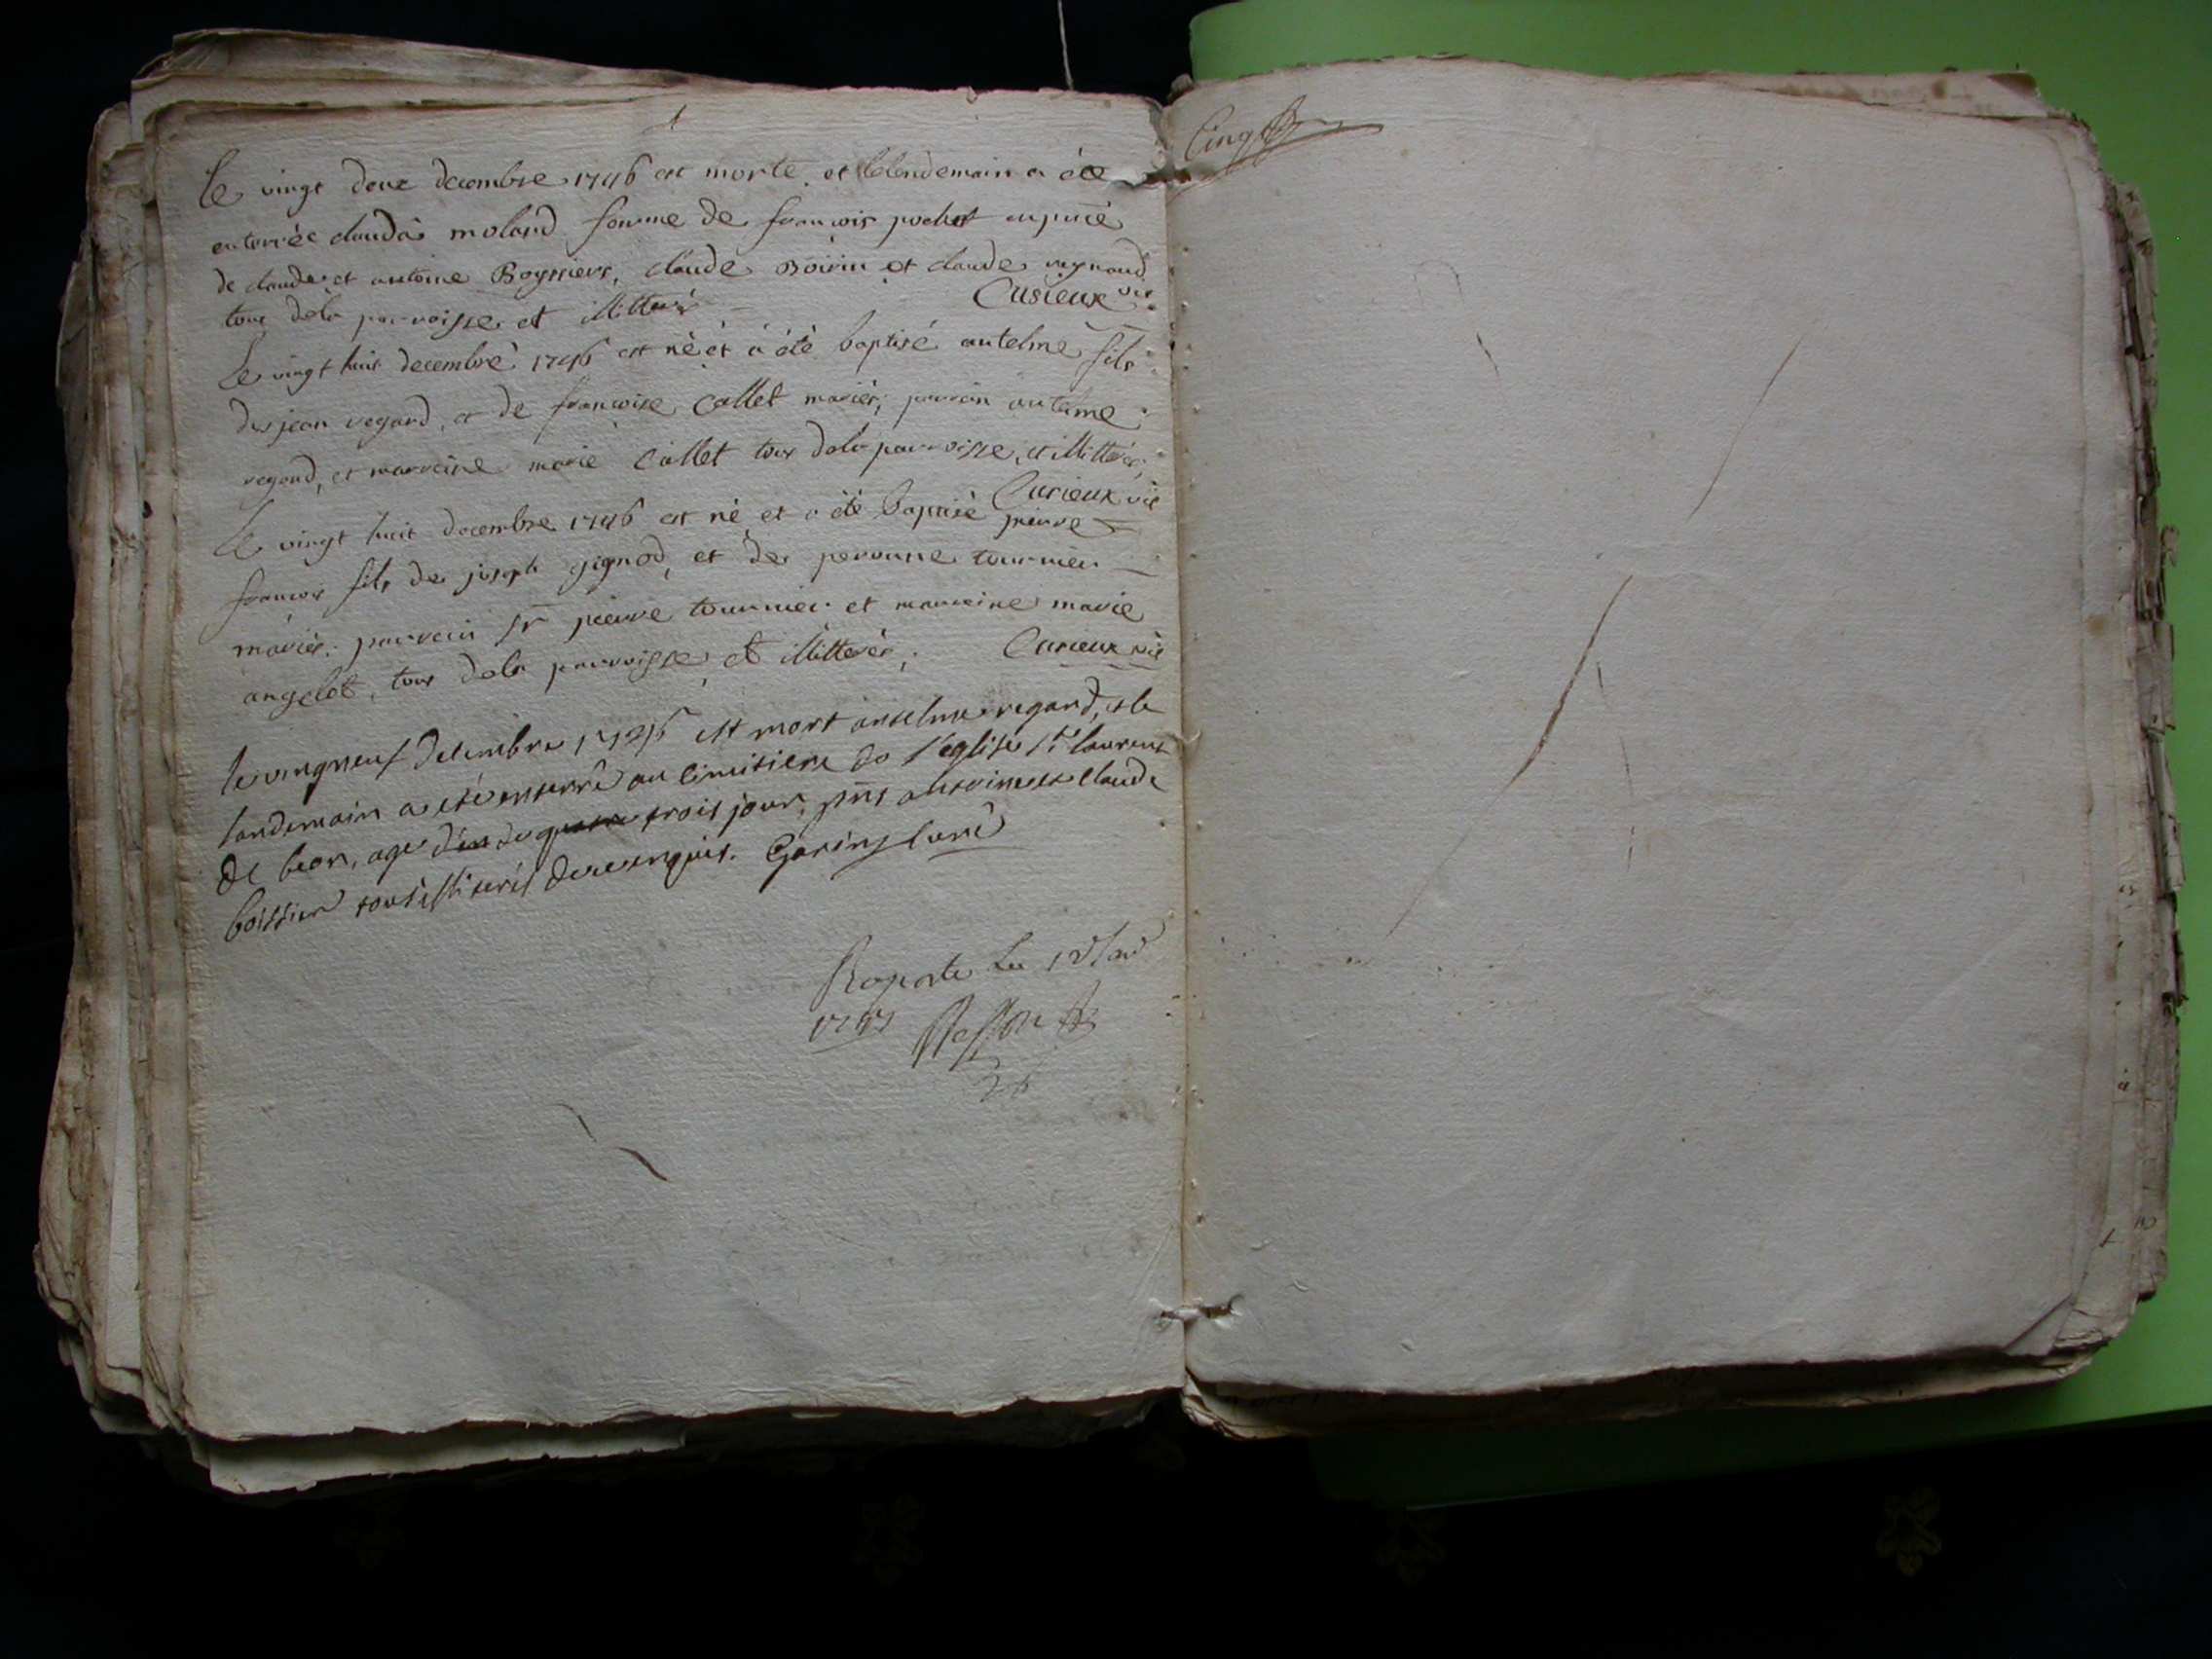 Le vingt deux decembre 1746 est morte et lelendemain a été
enterrée claudà molard femme de francois pochet en pnce
de claude et antoine Boyssiers, claude Boirin et claude reynaud
tous dela parroisse et illitterés Cusieux vic
Le vingt huit decembre 1746 est né et à été baptisé antelme fils
de jean regard, et de francoise Callet mariés, parrain antelme
regard, et marreine marie Callet tous dela parroisse, et illitterés,
Cusieux vic
Le vingt huit decembre 1746 est né et a été baptisé pierre
francois fils de joseph gignod, et de peronne tournier
mariés. parrein sr pierre tournier et marreine marie
angelot, tous dela parroisse, et illitterés, Cusieux vic
le vingneuf decembre 1746 est mort anselme regard, et le
landemain a eté enterré au cimitiere de l'eglise st laurent
de beon, agé de trois jour, pnts antoine et claude
boissier tous illiterés de ce enquis. Garin, curé
Raporté Le
1747
26
Cinq